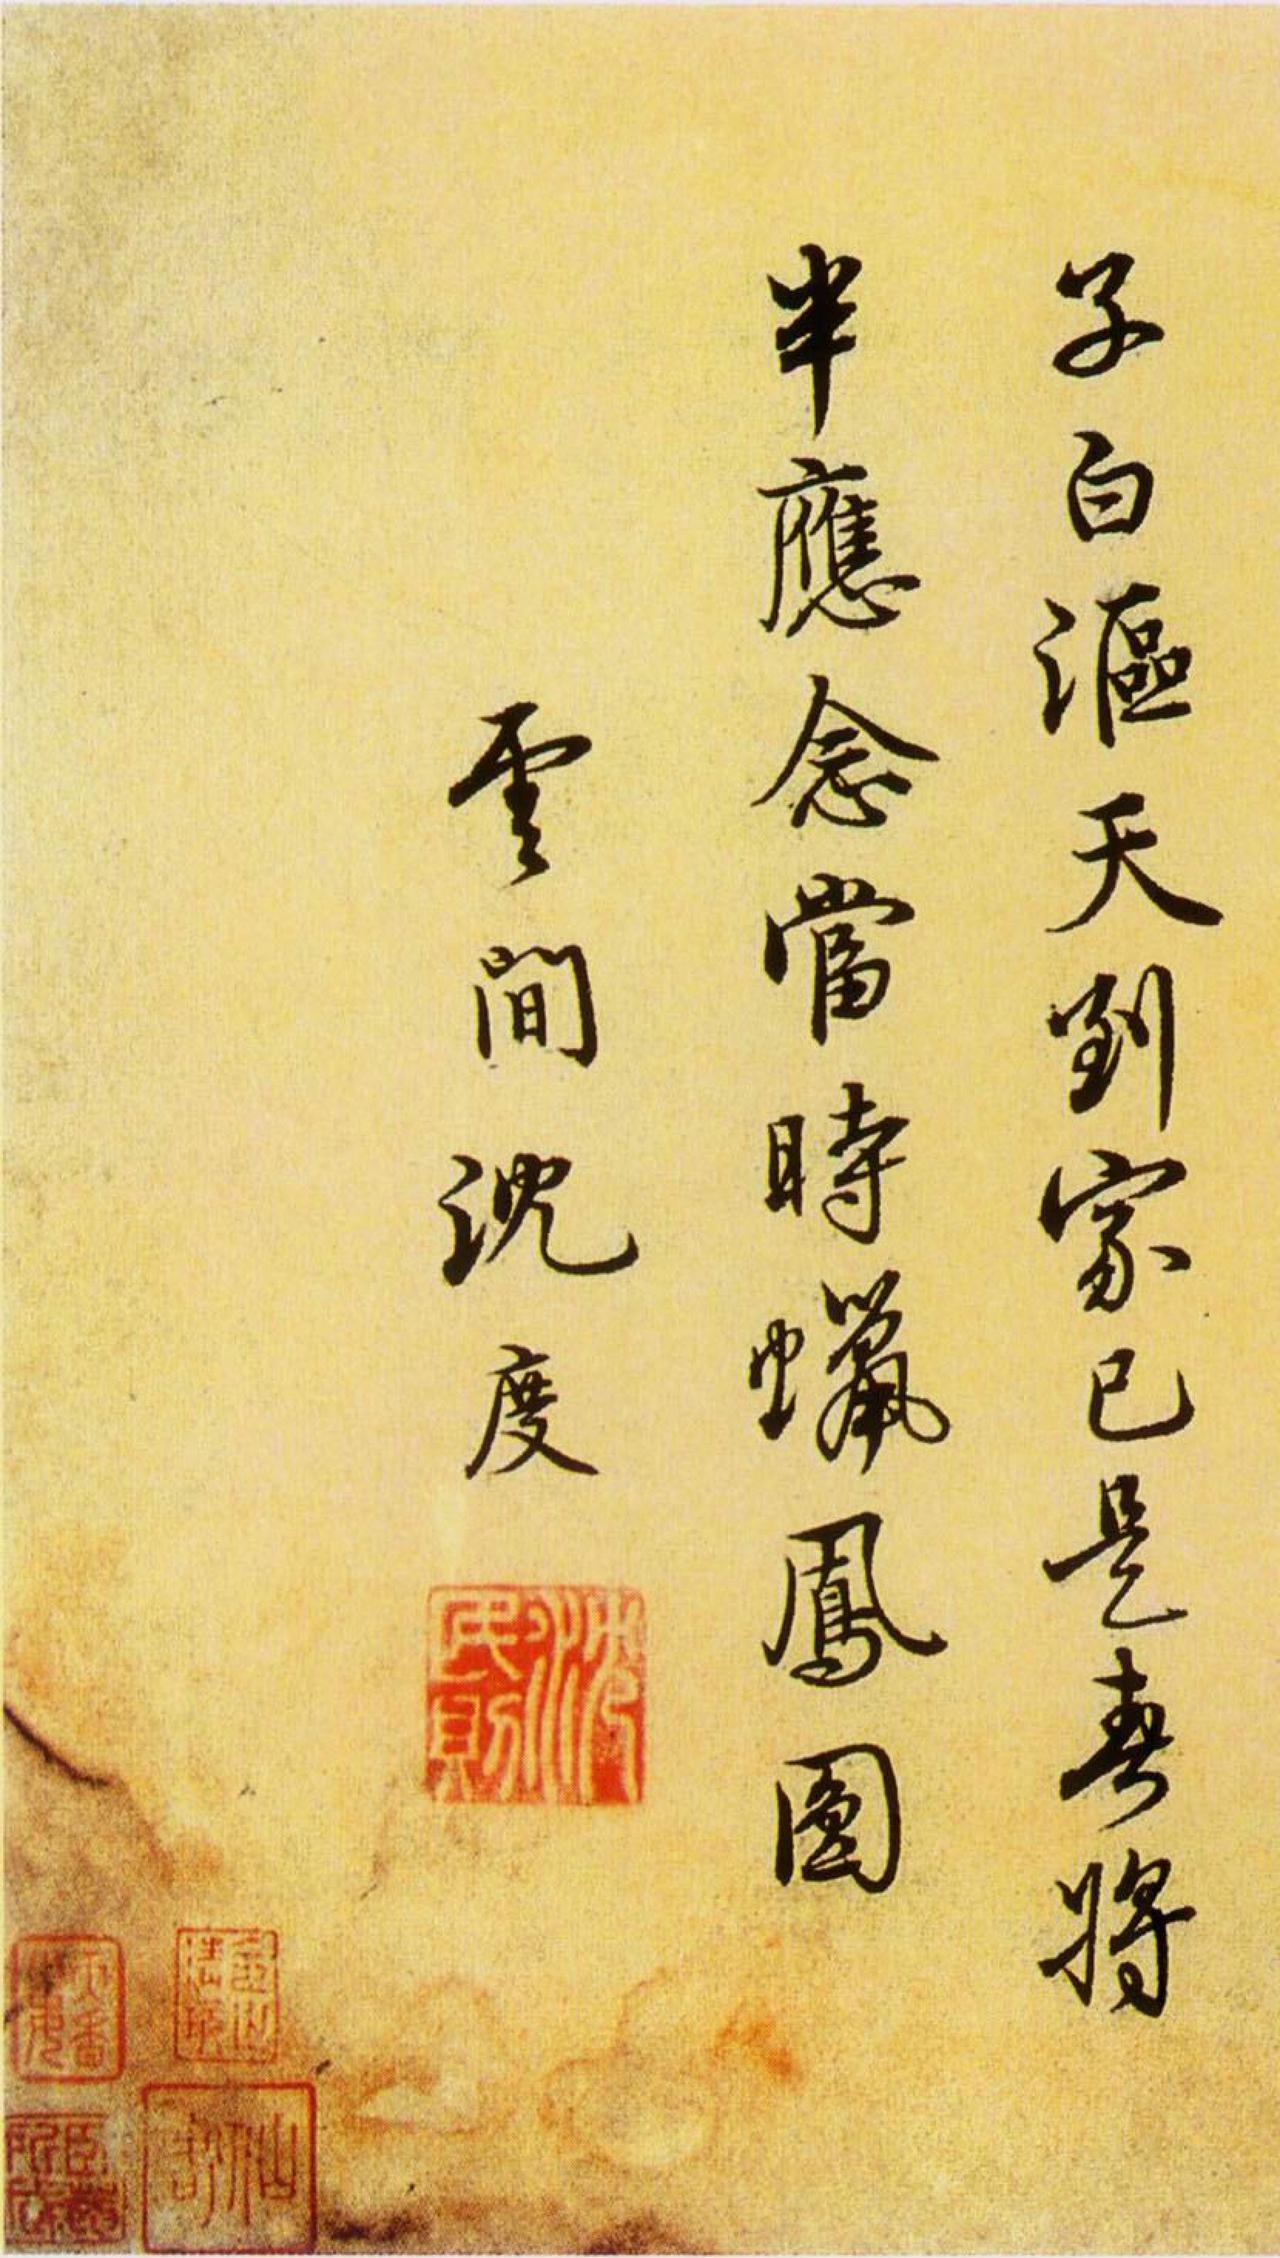 子白漚天到家已是春將
半應念當時蠟鳳圖
雲間沈度
沈民則